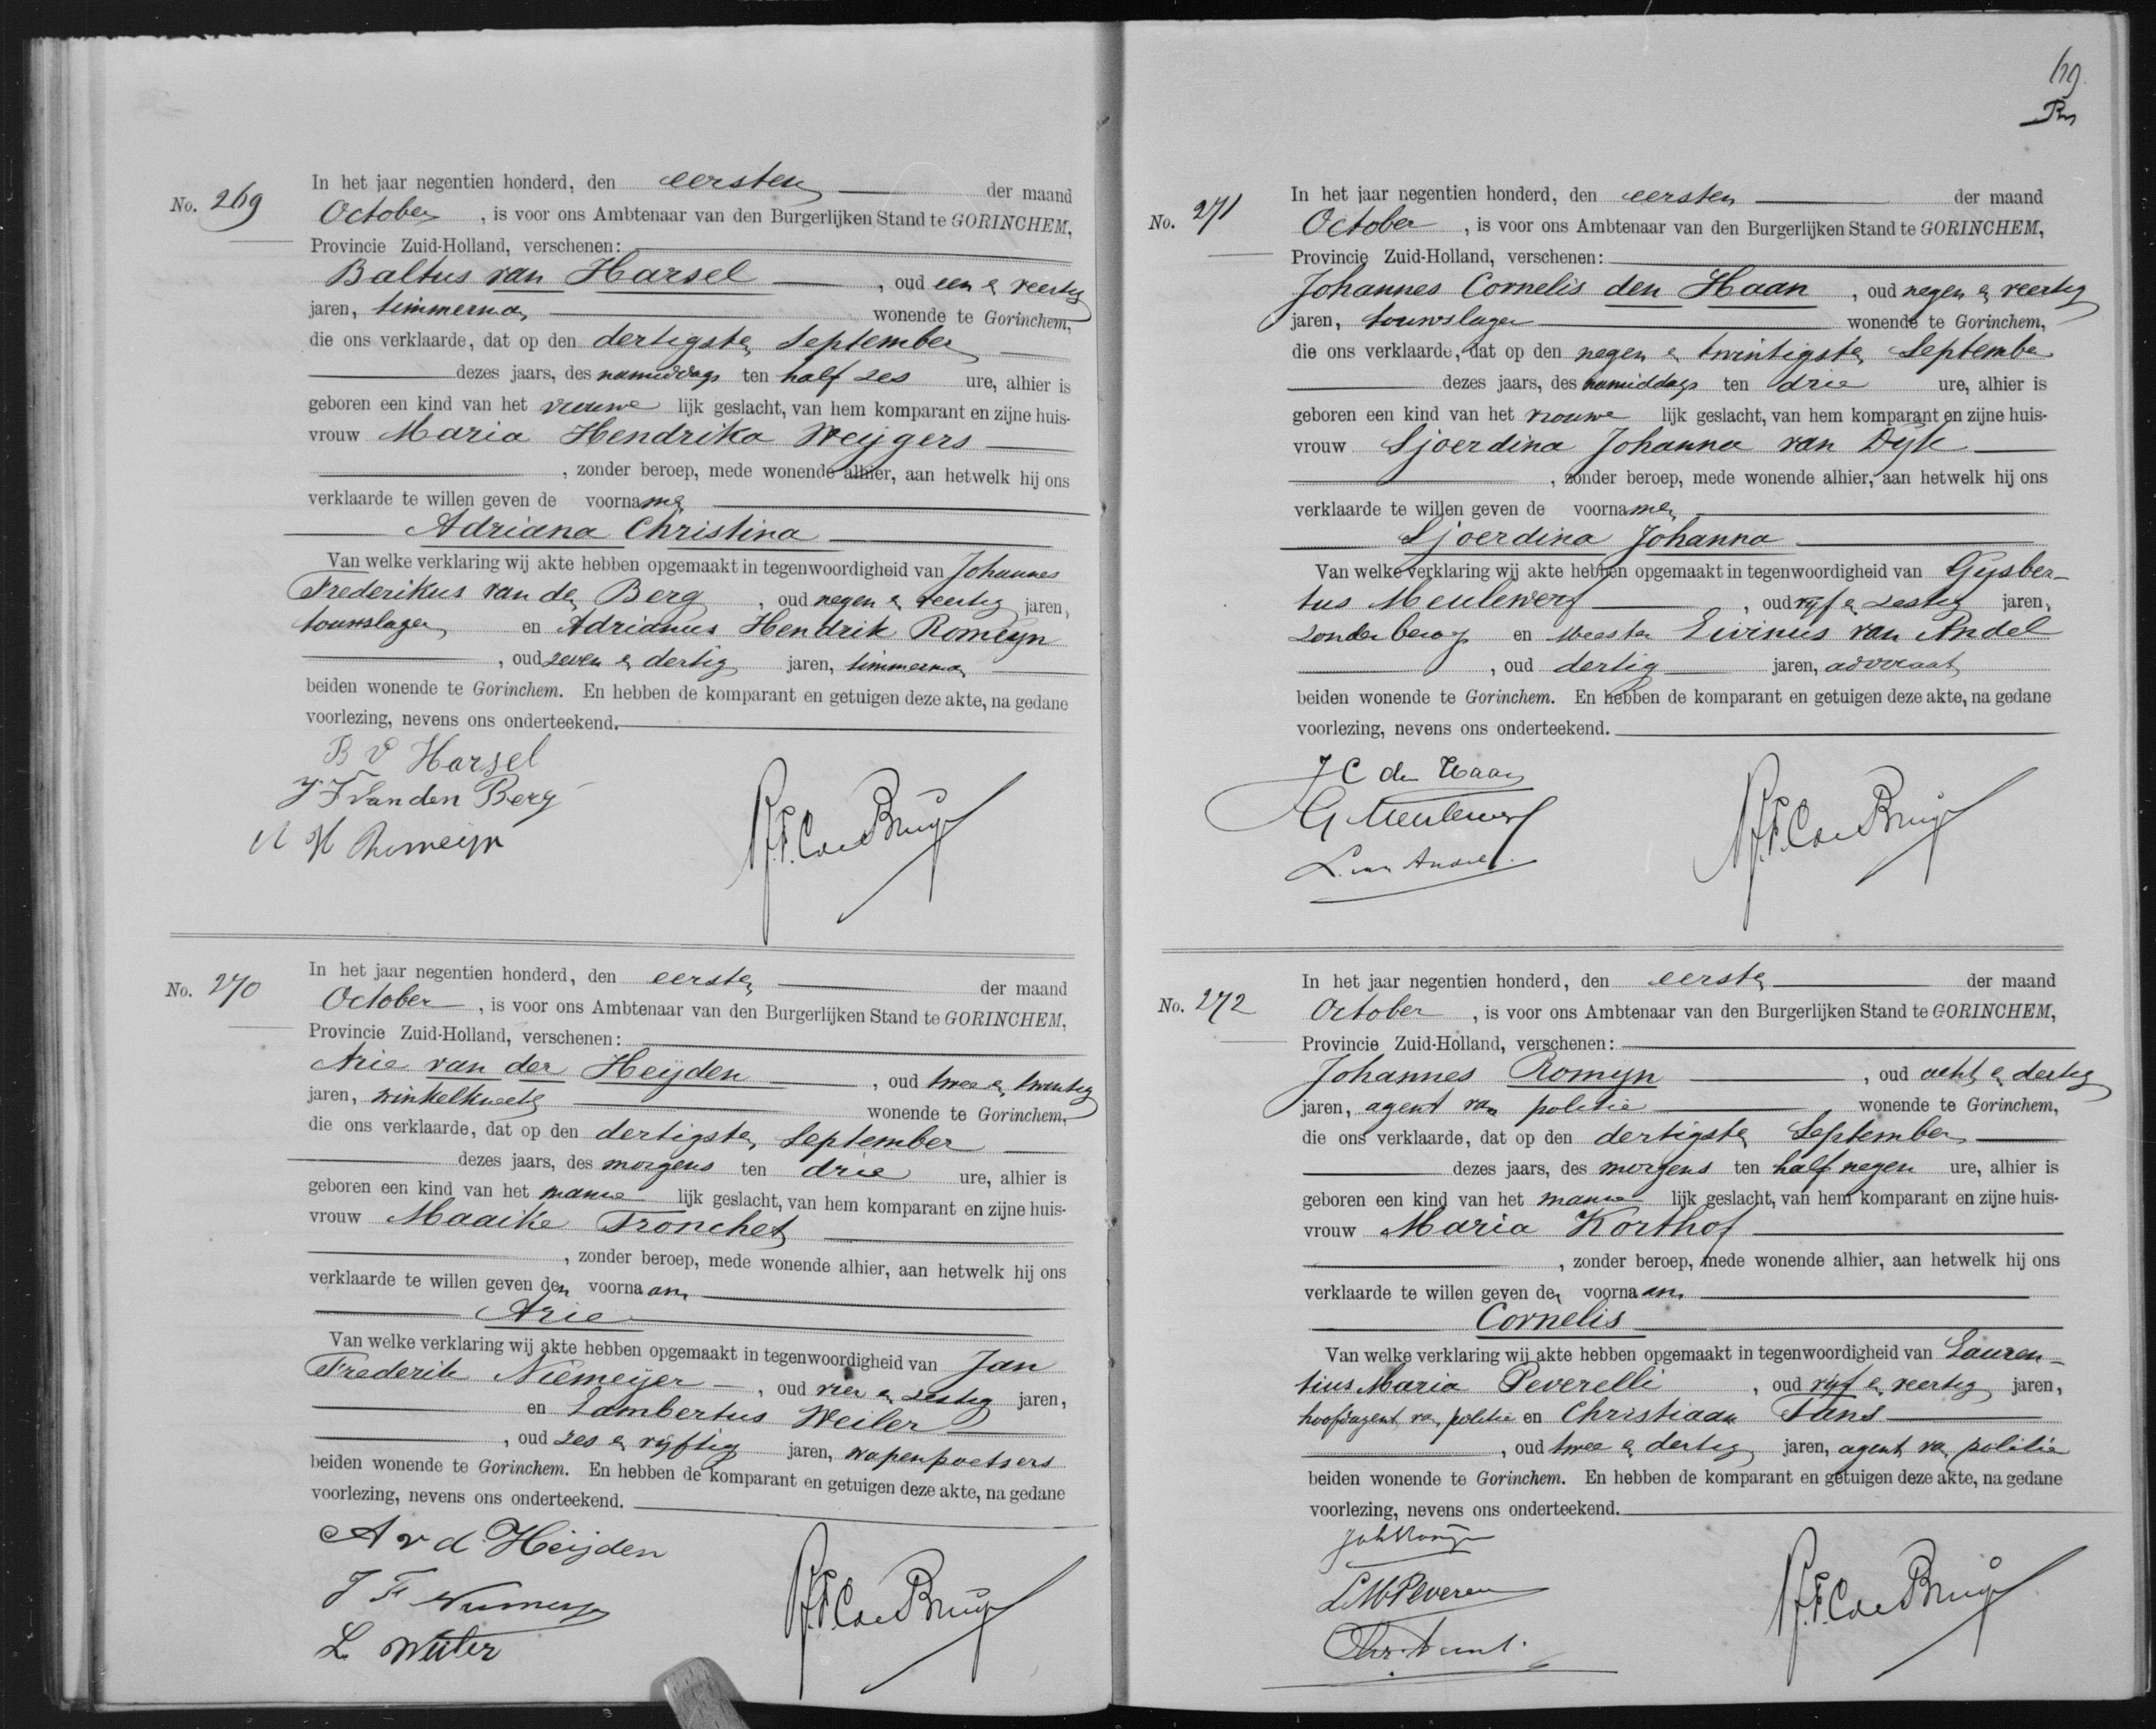 No. 269
In het jaar negentien honderd, den eersten der maand
October, is voor ons Ambtenaar van den Burgerlijken Stand te GORINCHEM,
Provincie Zuid-Holland, verschenen:
Baltus van Harsel, oud een en veertig
jaren, timmerman wonende te Gorinchem,
die ons verklaarde, dat op den dertigsten September
dezes jaars, des namiddags ten half zes ure, alhier is
geboren een kind van het vrouwelijk geslacht, van hem komparant en zijne huis-
vrouw Maria Hendrika Weijgers
, zonder beroep, mede wonende alhier, aan hetwelk hij ons
verklaarde te willen geven de voornamen
Adriana Christina
Van welke verklaring wij akte hebben opgemaakt in tegenwoordigheid van Johannes
Frederikus van den Berg, oud negen en veertig jaren,
touwslager en Adrianus Hendrik Romeijn
, oud zeven en dertig jaren, timmerman
beiden wonende te Gorinchem. En hebben de komparant en getuigen deze akte, na gedane
voorlezing, nevens ons onderteekend.
B V Harsel
J F van den Berg
A H Romeijn
No. 270
In het jaar negentien honderd, den eersten der maand
October, is voor ons Ambtenaar van den Burgerlijken Stand te GORINCHEM,
Provincie Zuid-Holland, verschenen:
Arie van der Heijden, oud twee en twintig
jaren, winkelknecht wonende te Gorinchem,
die ons verklaarde, dat op den dertigsten September
dezes jaars, des morgens ten drie ure, alhier is
geboren een kind van het mannelijk geslacht, van hem komparant en zijne huis-
vrouw Maaike Tronchet
, zonder beroep, mede wonende alhier, aan hetwelk hij ons
verklaarde te willen geven den voornaam
Arie
Van welke verklaring wij akte hebben opgemaakt in tegenwoordigheid van Jan
Frederik Niemeijer, oud vier en zestig jaren,
en Lambertus Weiler
, oud zes en vijftig jaren, wapenpoetsers
beiden wonende te Gorinchem. En hebben de komparant en getuigen deze akte, na gedane
voorlezing, nevens ons onderteekend.
A v d Heijden
J F Niemeijer
L Weiler
69.
No. 271
In het jaar negentien honderd, den eersten der maand
October, is voor ons Ambtenaar van den Burgerlijken Stand te GORINCHEM,
Provincie Zuid-Holland, verschenen:
Johannes Cornelis den Haan, oud negen en veertig
jaren, touwslager wonende te Gorinchem,
die ons verklaarde, dat op den negen en twintigsten September
dezes jaars, des namiddags ten drie ure, alhier is
geboren een kind van het vrouwelijk geslacht, van hem komparant en zijne huis-
vrouw Sjoerdina Johanna van Dijk
, zonder beroep, mede wonende alhier, aan hetwelk hij ons
verklaarde te willen geven de voornamen
Sjoerdina Johanna
Van welke verklaring wij akte hebben opgemaakt in tegenwoordigheid van Gijsber-
tus Meulewerf, oud vijf en zestig jaren,
zonder beroep en Meester Livinus van Andel
, oud dertig jaren, advocaat
beiden wonende te Gorinchem. En hebben de komparant en getuigen deze akte, na gedane
voorlezing, nevens ons onderteekend.
J C den Haan
G Meulewerf
L. van Andel.
No. 272
In het jaar negentien honderd, den eersten der maand
October, is voor ons Ambtenaar van den Burgerlijken Stand te GORINCHEM,
Provincie Zuid-Holland, verschenen:
Johannes Romijn, oud acht en dertig
jaren, agent van politie wonende te Gorinchem,
die ons verklaarde, dat op den dertigsten September
dezes jaars, des morgens ten half negen ure, alhier is
geboren een kind van het mannelijk geslacht, van hem komparant en zijne huis-
vrouw Maria Korthof
, zonder beroep, mede wonende alhier, aan hetwelk hij ons
verklaarde te willen geven den voornaam
Cornelis
Van welke verklaring wij akte hebben opgemaakt in tegenwoordigheid van Lauren-
tius Maria Peverelli, oud vijf en veertig jaren,
hoofdagent van politie en Christiaan
, oud twee en dertig jaren, agent van politie
beiden wonende te Gorinchem. En hebben de komparant en getuigen deze akte, na gedane
voorlezing, nevens ons onderteekend.
Joh Romijn
L M Peverelli